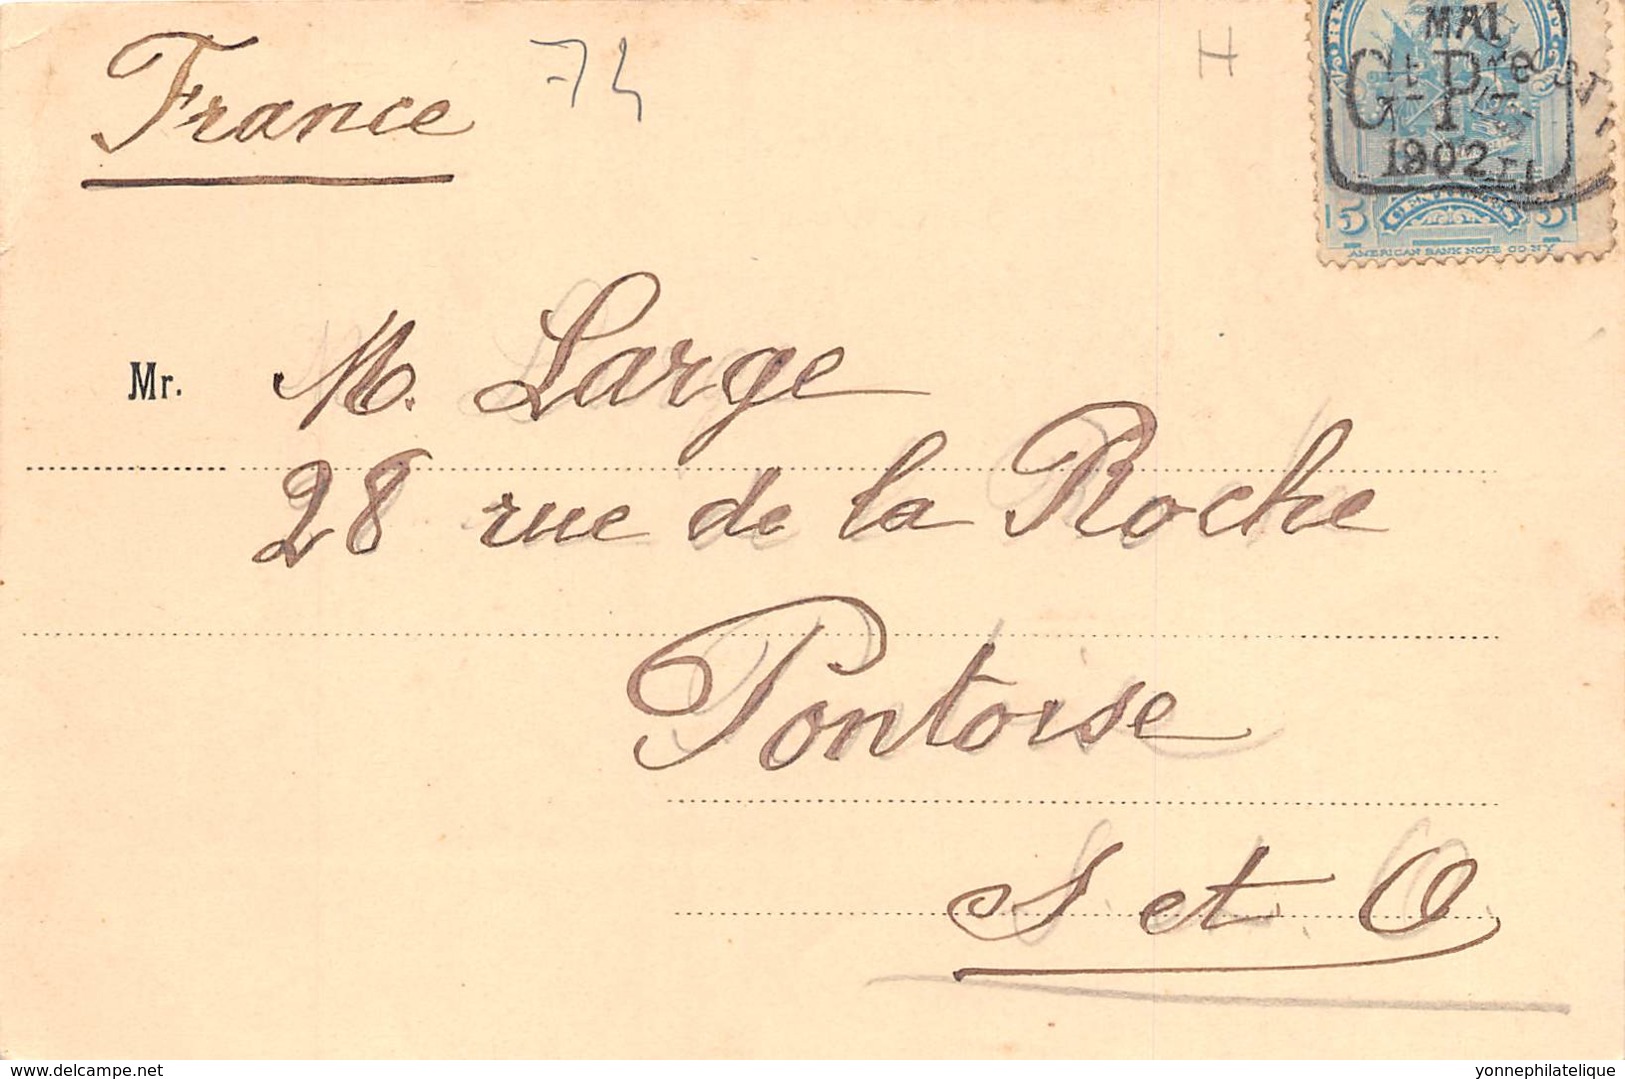 France
74
H
MAI
Gt Pre
1902
5 CENTIMES 5
AMERICAN BANK NOTE CO. N.Y.
Mr. M. Large
28 rue de la Roche
Pontoise
S et O
delcampe.net
yonnephilatelique